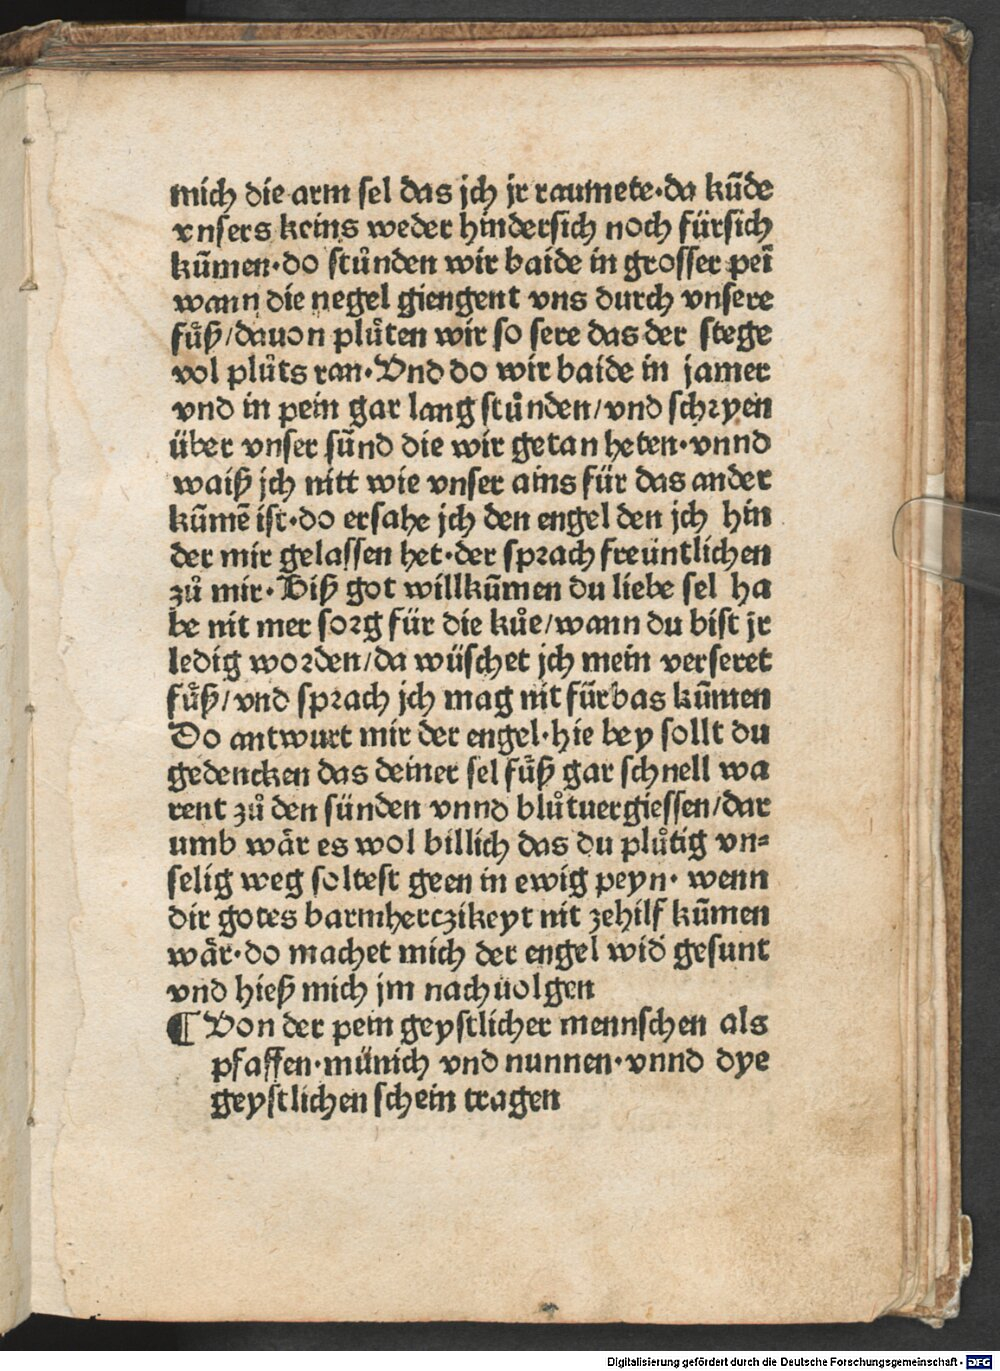 mich die arm sel das jch jr raumete·da kūde
vnsers keins weder hindersich noch fürsich
kūmen·do stůnden wir baide in grosser peī
wann die negel giengent vns durch vnsere
fůß/dauon plůten wir so sere das der stege
vol plůts ran·Vnd do wir baide in jamer
vnd in pein gar lang stůnden/vnd schryen
über vnser sūnd die wir getan heten·vnnd
waiß jch nitt wie vnser ains für das ander
kūmē ist·do ersahe jch den engel den jch hin
der mir gelassen het·der sprach freüntlichen
zů mir·Biß got willkūmen du liebe sel ha
be nit mer sorg für die kůe/wann du bist jr
ledig worden/da wüschet jch mein verseret
fůß/vnd sprach jch mag nit fürbas kūmen
Do antwurt mir der engel·hie bey sollt du
gedencken das deiner sel fůß gar schnell wa
rent zů den sünden vnnd blůtuergiessen/dar
umb wår es wol billich das du plůtig vn=
selig weg soltest geen in ewig peyn· wenn
dir gotes barmherczikeyt nit zehilf kūmen
wår·do machet mich der engel wid gesunt
vnd hieß mich jm nachuolgen
¶ Von der pein geystlicher mennschen als
pfaffen·münich vnd nunnen·vnnd dye
geystlichen schein tragen
Digitalisierung gefördert durch die Deutsche Forschungsgemeinschaft - DFG